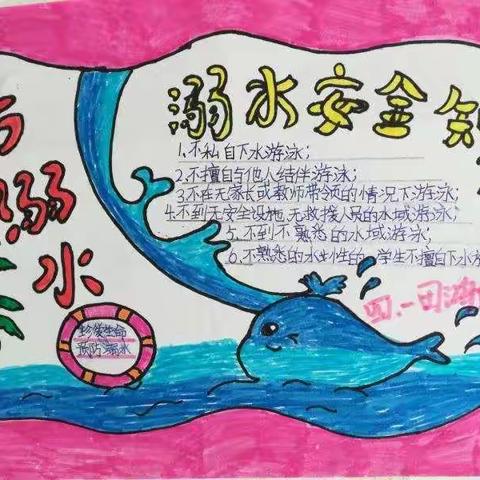 溺水安全
1.不私自下水游泳；
2.不擅自与他人结伴游泳；
3.不在无家长或教师带领的情况下游泳；
4.不到无安全设施、无救援人员的水域游泳；
5.不到不熟悉的水域游泳；
6.不熟悉的水性的、学生不擅自下水
溺水
珍爱生命
预防溺水
四.一